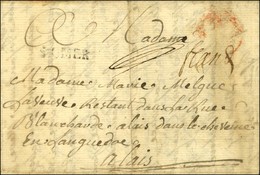 Madame
franc
ST MER
Madame Marie Melque
la veuve Restant dans la Rue
Blanchaude alais dans le chevene
En Languedoc
a Lais